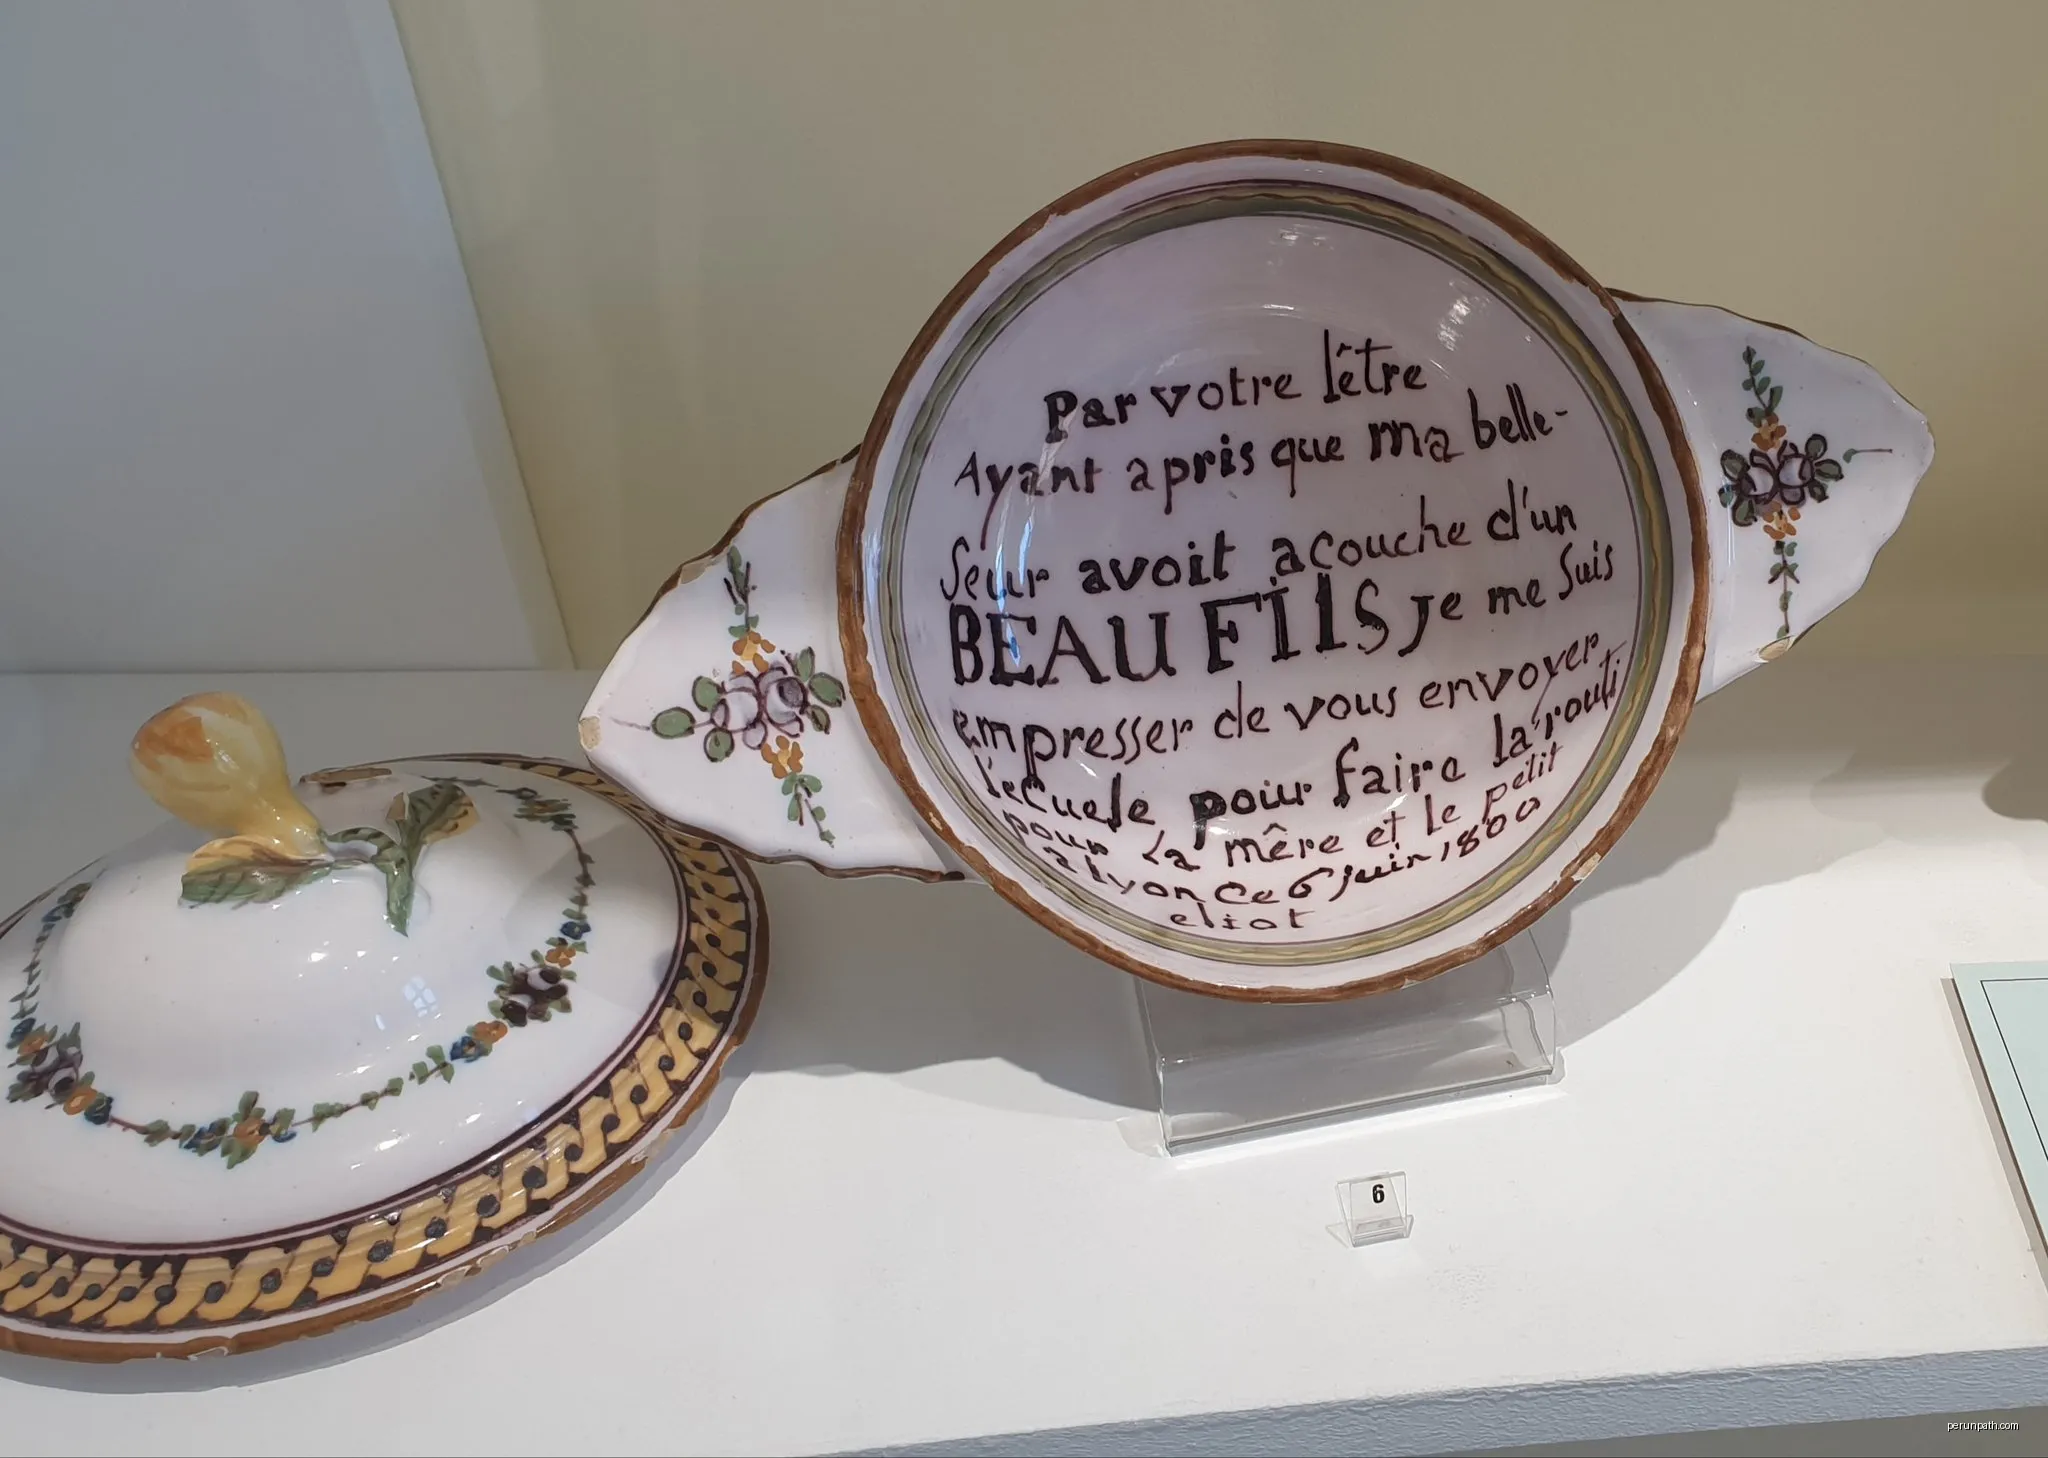 Par votre lêtre
Ayant apris que ma belle-
Seur avoit acouche d'un
BEAU FIlS Je me Suis
empresser de vous envoyer
l'ecuele pour faire la routi
pour La mêre et le petit
a lyon Ce 6 juin 1800
eliot
6
perunpath.com